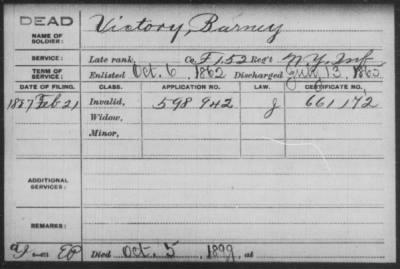 DEAD
NAME OF SOLDIER: Victory, Barney
SERVICE: Late rank, Co. F 152 Reg't N.Y. Inf
TERM OF SERVICE: Enlisted Oct. 6, 1862 Discharged July 13, 1865
DATE OF FILING. CLASS. APPLICATION NO. LAW. CERTIFICATE NO.
1887 Feb 21 Invalid, 598 942 J 661,172
Widow,
Minor,
ADDITIONAL SERVICES:
REMARKS:
Died Oct. 5, 1899, at